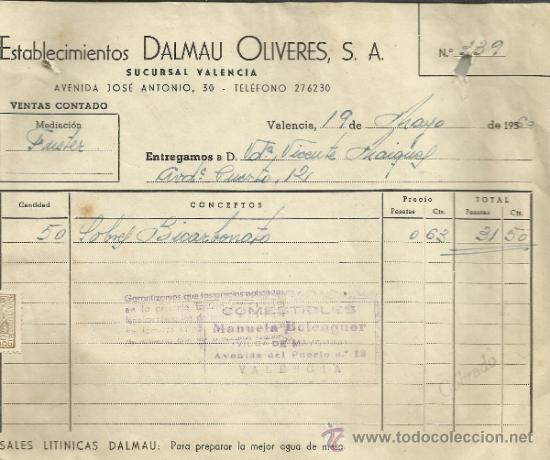 Establecimientos DALMAU OLIVERES, S. A.
SUCURSAL VALENCIA
AVENIDA JOSÉ ANTONIO, 30 - TELÉFONO 276230
N.º 239
VENTAS CONTADO
Mediación
Fuster
Valencia, 19 de Mayo de 1960
Entregamos a D. Vdª Vicente Maiques
Avdª Puerto, 12
Cantidad
CONCEPTOS
Precio
TOTAL
Pesetas Cts. Pesetas Cts.
50 Sobres Bicarbonato 0 63 31 50
Garantizamos que los precios aplicados
COMESTIBLES
Manuela Belenguer
VIUDA DE
Avenida del Puerto n.º 12
VALENCIA
Cobrado
SALES LITINICAS DALMAU: Para preparar la mejor agua de mesa
todocoleccion
todocoleccion.net